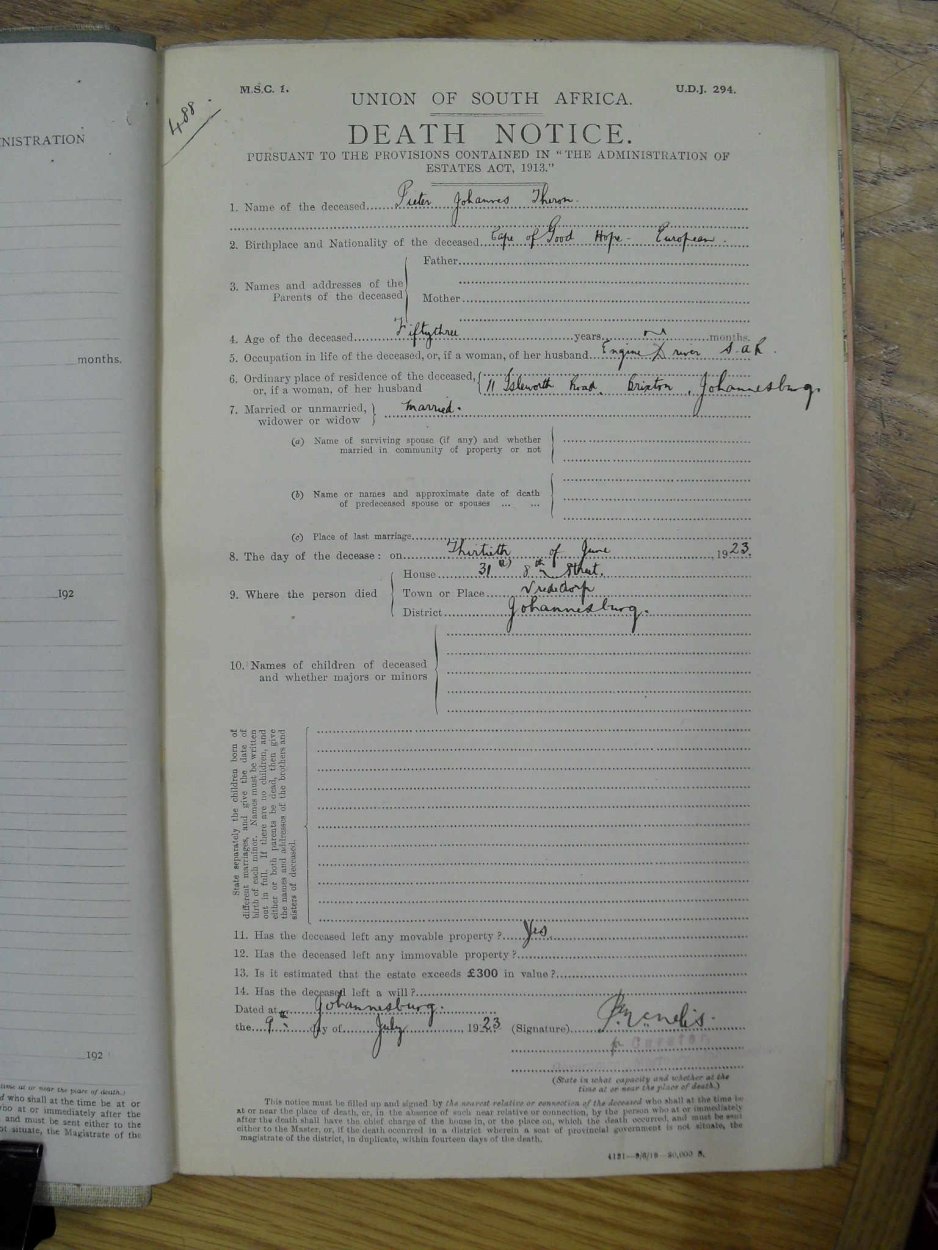 NISTRATION
months.
192
192
time at or near the place of death.)
d who shall at the time be at or
who at or immediately after the
and must be sent either to the
ot situate, the Magistrate of the
488
M.S.C. 1.
U.D.J. 294.
UNION OF SOUTH AFRICA.
DEATH NOTICE.
PURSUANT TO THE PROVISIONS CONTAINED IN "THE ADMINISTRATION OF
ESTATES ACT, 1913."
1. Name of the deceased Pieter Johannes Theron
2. Birthplace and Nationality of the deceased Cape of Good Hope - European.
3. Names and addresses of the Parents of the deceased
Father
Mother
4. Age of the deceased Fiftythree years months.
5. Occupation in life of the deceased, or, if a woman, of her husband Engine Driver S.A.R.
6. Ordinary place of residence of the deceased, or, if a woman, of her husband 11 Isleworth Road, Brixton, Johannesburg.
7. Married or unmarried, widower or widow married.
(a) Name of surviving spouse (if any) and whether
married in community of property or not
(b) Name or names and approximate date of death
of predeceased spouse or spouses ... ...
(c) Place of last marriage
8. The day of the decease: on Thirtieth of June 1923.
9. Where the person died
House 31 8th Street,
Town or Place Vrededorp
District Johannesburg.
10. Names of children of deceased
and whether majors or minors
State separately the children born of
different marriages, and give the date of
birth of each minor. Names must be written
out in full. If there are no children, and
either or both parents be dead, then give
the names and addresses of the brothers and
sisters of deceased.
11. Has the deceased left any movable property? Yes
12. Has the deceased left any immovable property?
13. Is it estimated that the estate exceeds £300 in value?
14. Has the deceased left a will?
Dated at Johannesburg.
the 9th day of July, 1923 (Signature)
for Curator
(State in what capacity and whether at the
time at or near the place of death.)
This notice must be filled up and signed by the nearest relative or connection of the deceased who shall at the time be
at or near the place of death, or, in the absence of such near relative or connection, by the person who at or immediately
after the death shall have the chief charge of the house in, or the place on, which the death occurred, and must be sent
either to the Master, or, if the death occurred in a district wherein a seat of provincial government is not situate, the
magistrate of the district, in duplicate, within fourteen days of the death.